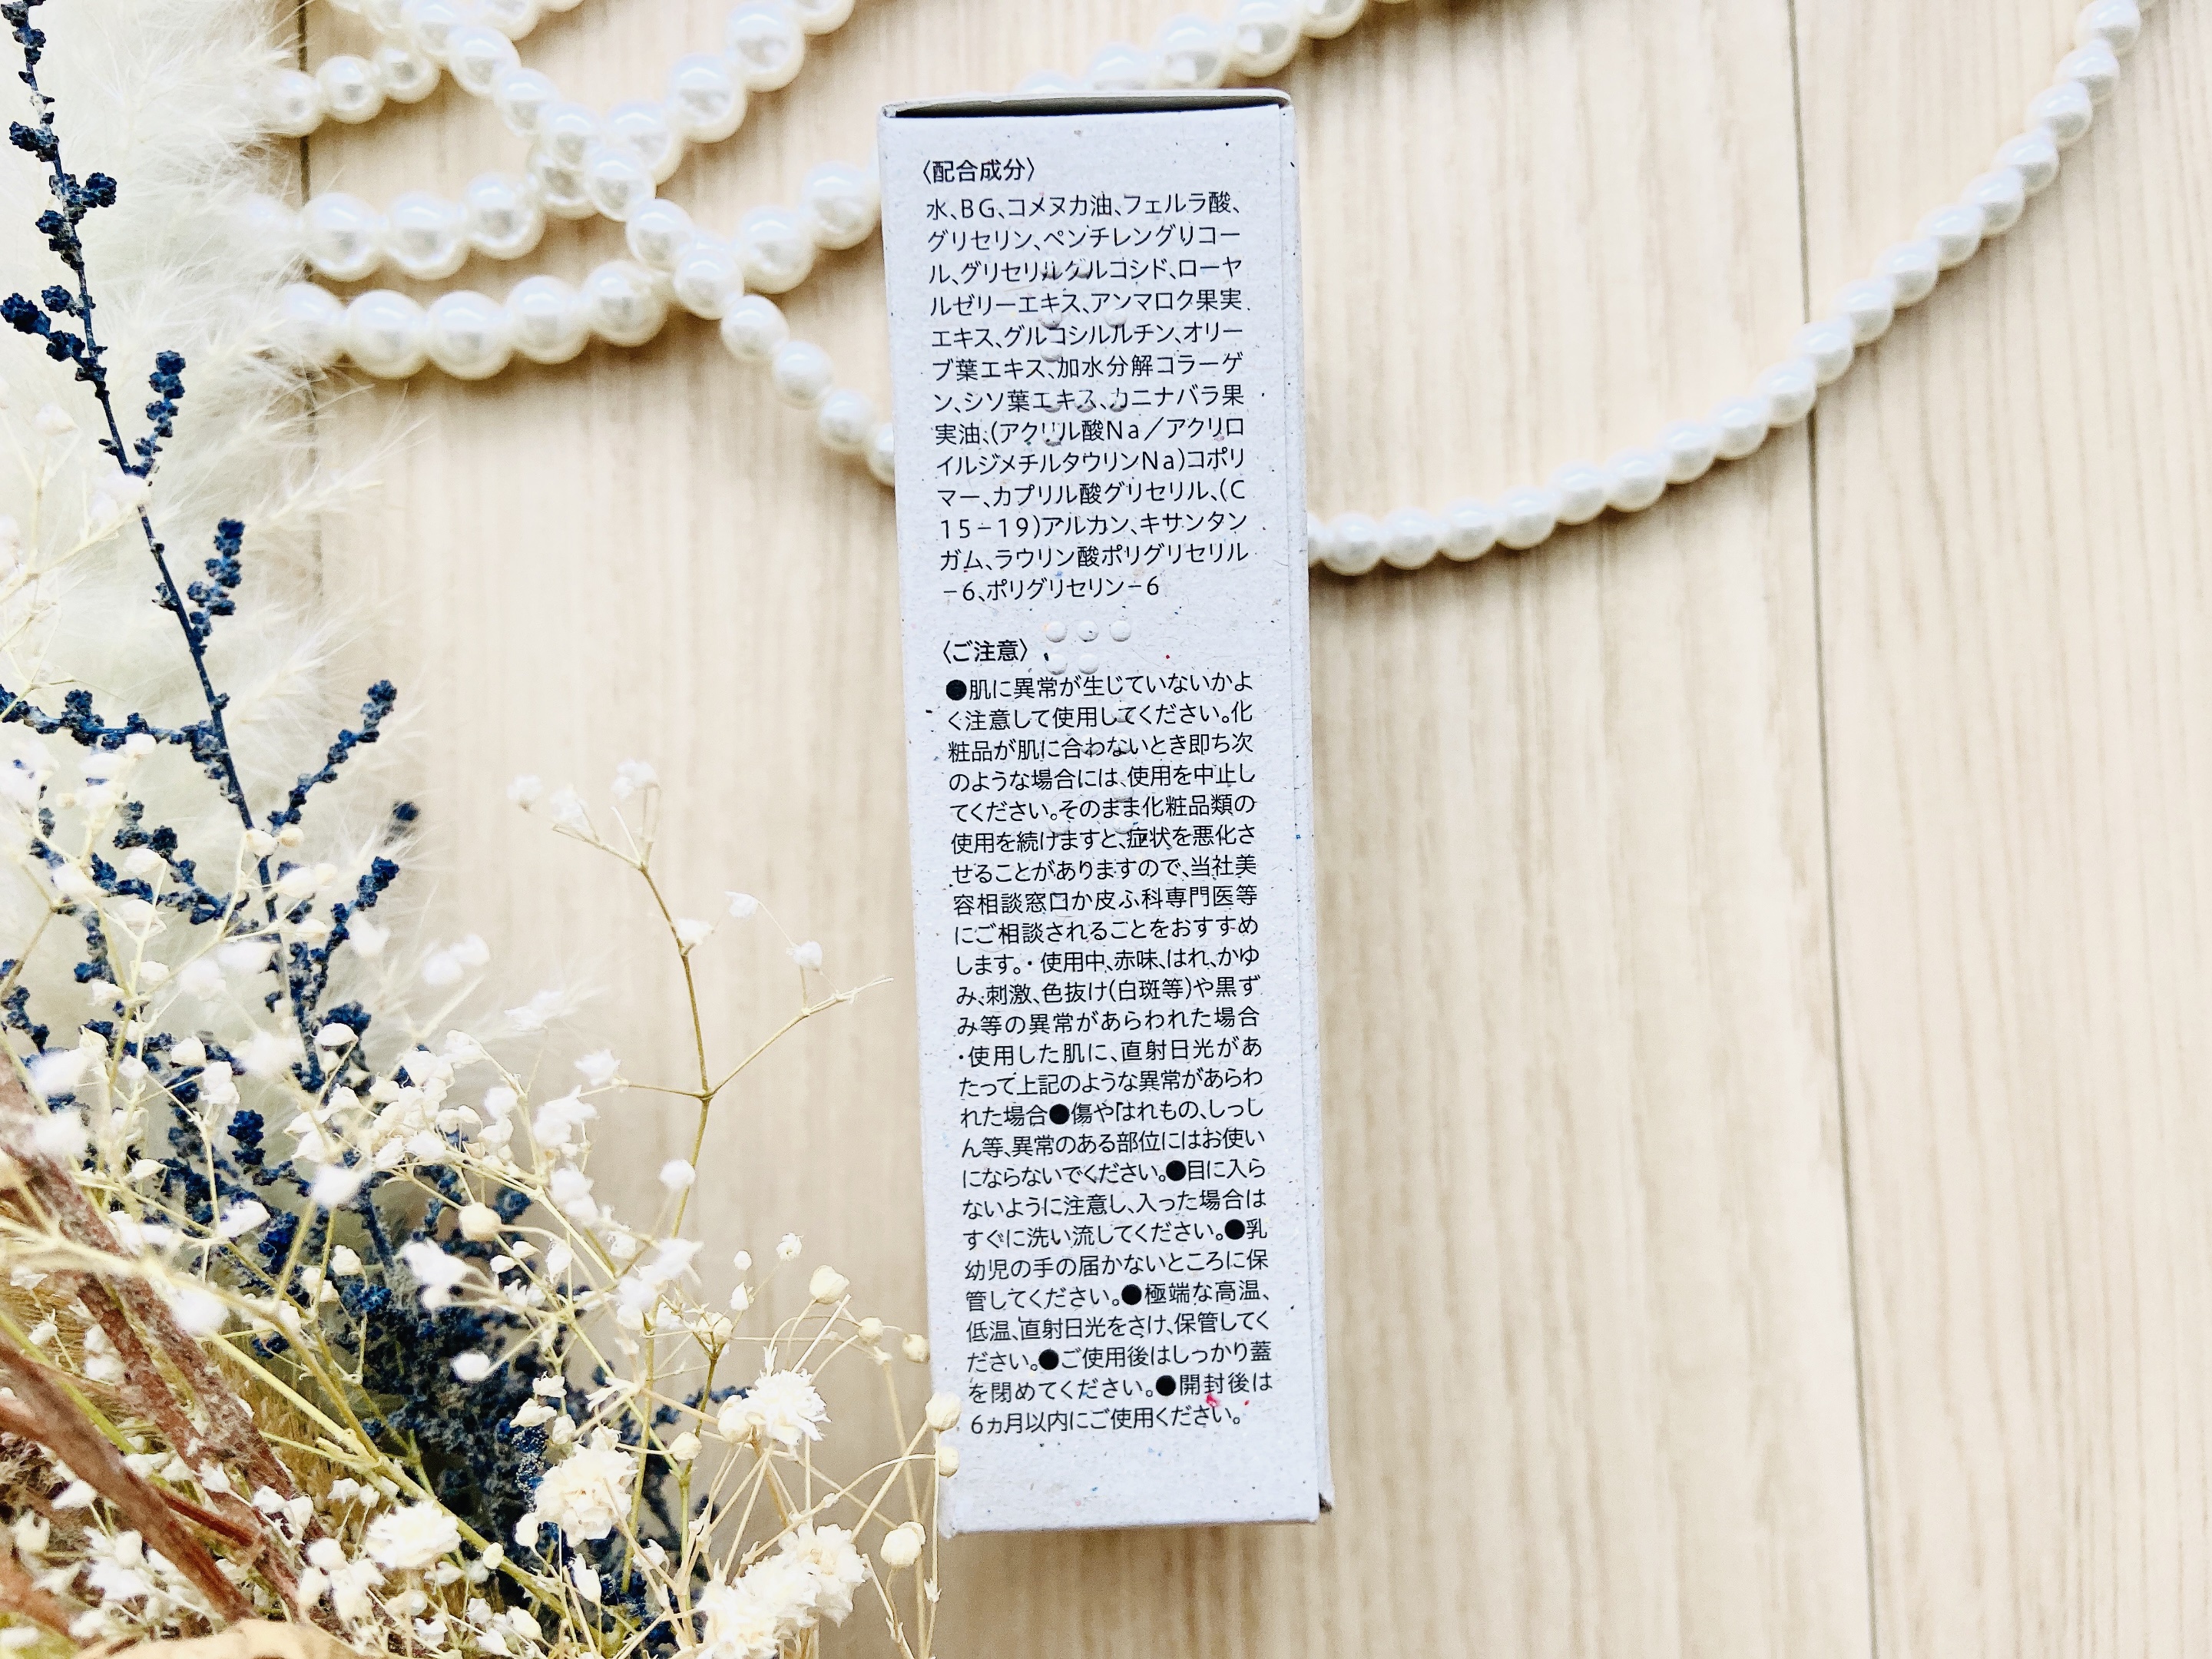 〈配合成分〉
水、BG、コメヌカ油、フェルラ酸、
グリセリン、ペンチレングリコー
ル、グリセリルグルコシド、ローヤ
ルゼリーエキス、アンマロク果実
エキス、グルコシルルチン、オリー
ブ葉エキス、加水分解コラーゲ
ン、シソ葉エキス、カニナバラ果
実油、(アクリル酸Na/アクリロ
イルジメチルタウリンNa)コポリ
マー、カプリル酸グリセリル、(C
15-19)アルカン、キサンタン
ガム、ラウリン酸ポリグリセリル
-6、ポリグリセリン-6
〈ご注意〉
●肌に異常が生じていないかよ
く注意して使用してください。化
粧品が肌に合わないとき即ち次
のような場合には、使用を中止し
てください。そのまま化粧品類の
使用を続けますと、症状を悪化さ
せることがありますので、当社美
容相談窓口か皮ふ科専門医等
にご相談されることをおすすめ
します。・使用中、赤味、はれ、かゆ
み、刺激、色抜け(白斑等)や黒ず
み等の異常があらわれた場合
・使用した肌に、直射日光があ
たって上記のような異常があらわ
れた場合●傷やはれもの、しっし
ん等、異常のある部位にはお使い
にならないでください。●目に入ら
ないように注意し、入った場合は
すぐに洗い流してください。●乳
幼児の手の届かないところに保
管してください。●極端な高温、
低温、直射日光をさけ、保管してく
ださい。●ご使用後はしっかり蓋
を閉めてください。●開封後は
6ヵ月以内にご使用ください。